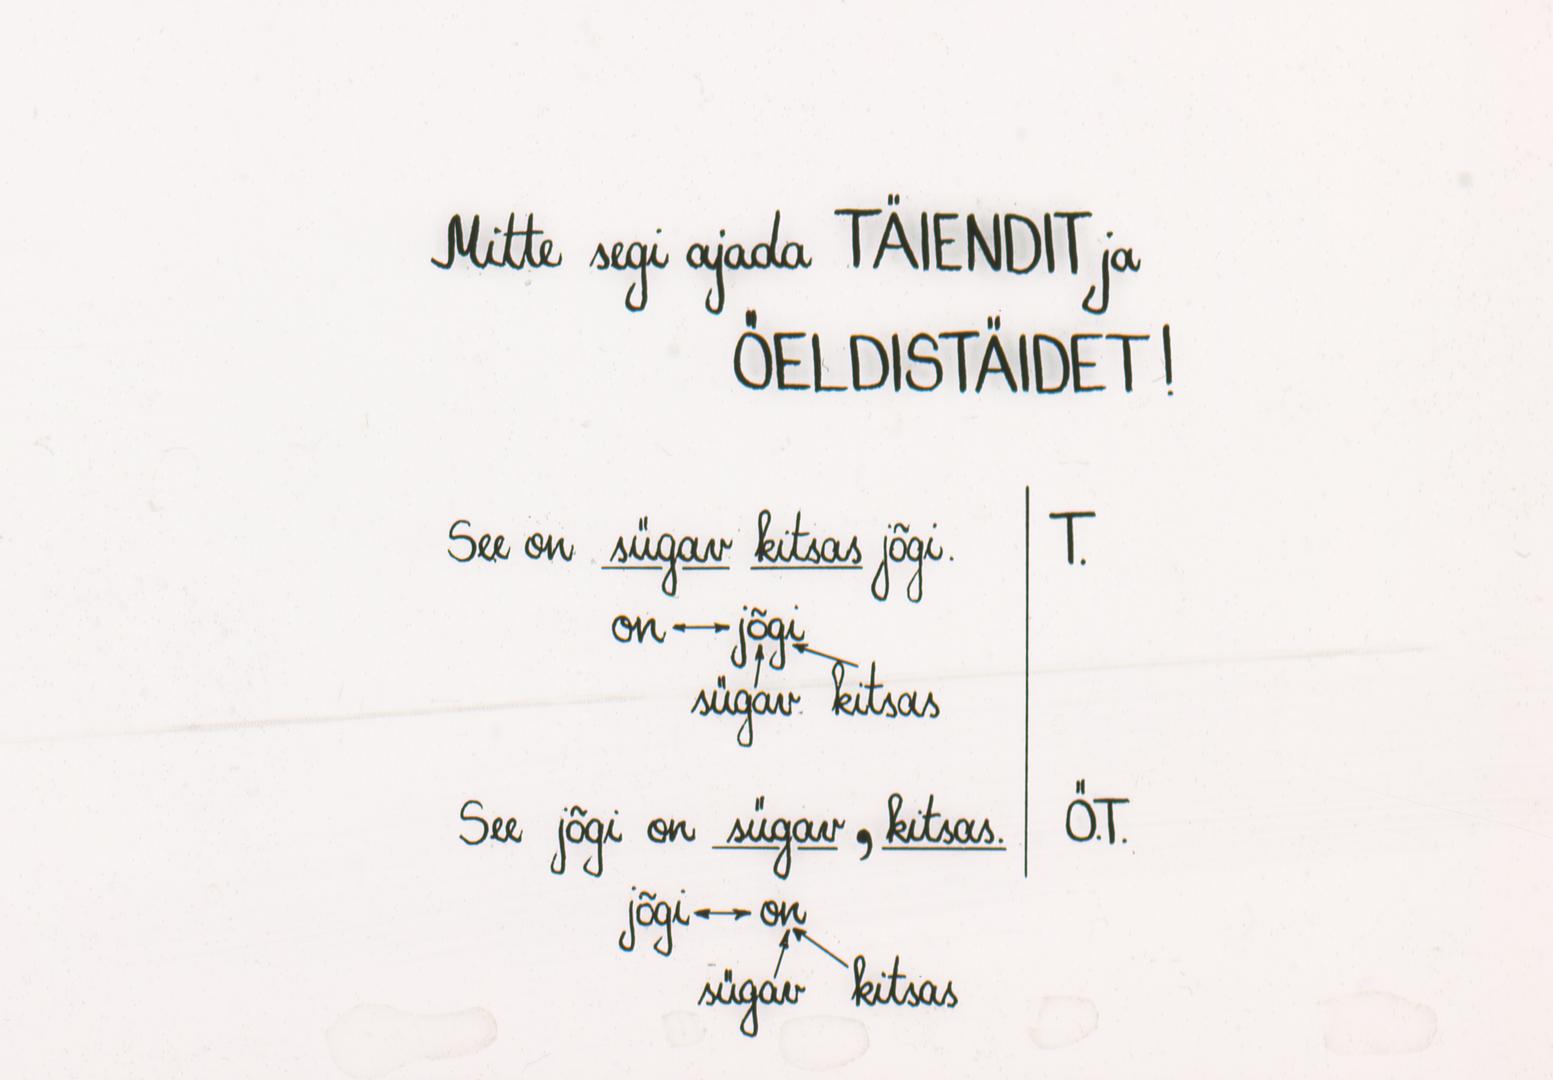 Mitte segi ajada TÄIENDIT ja
ÖELDISTÄIDET!
See on sügav kitsas jõgi. T.
on ↔ jõgi
sügav kitsas
See jõgi on sügav, kitsas. Ö.T.
jõgi ↔ on
sügav kitsas